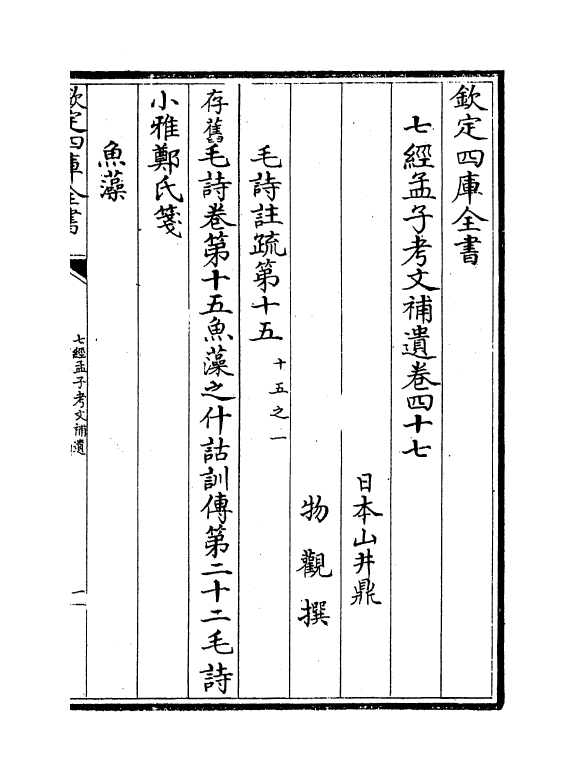 欽定四庫全書
七經孟子考文補遺卷四十七
日本山井鼎
物觀撰
毛詩註疏第十五 十五之一
存舊毛詩卷第十五魚藻之什詁訓傳第二十二毛詩
小雅鄭氏箋
魚藻
欽定四庫全書
七經孟子考文補遺